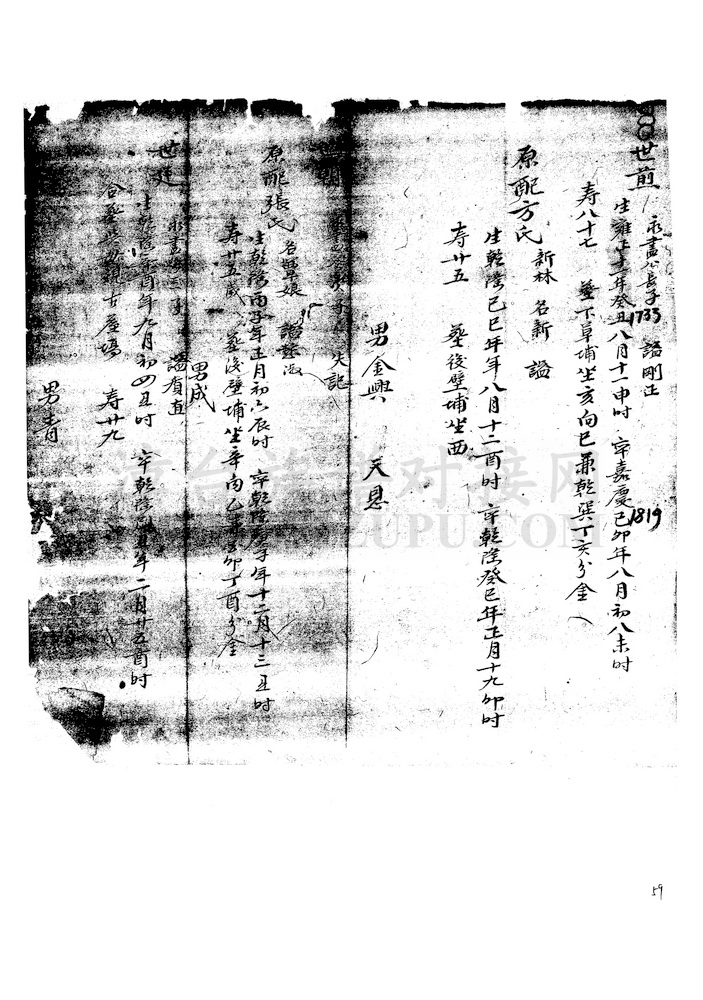 8世煎
永盡公長子 諡剛正
1733
生雍正十一年癸丑八月十一申时 卒嘉慶己卯年八月初八未时
1819
寿八十七 葬下草埔坐亥向巳兼乾巽丁亥分金
原配方氏
新林 名新 諡
生乾隆己巳年年八月十二酉时 卒乾隆癸巳年正月十九卯时
寿廿五 葬後壁埔坐酉
男金興 天恩
失記
原配張氏 名 娘 諡
生乾隆丙子年正月初六辰时 卒乾隆庚子年十二月十三丑时
寿廿五歲 葬後壁埔坐辛向乙 卯丁酉分金
男成
世
永盡公 子 諡 直
生乾隆 酉年九月初四丑时 卒乾隆 年二月廿五酉时
合葬 古屋場 寿廿九
男青
59